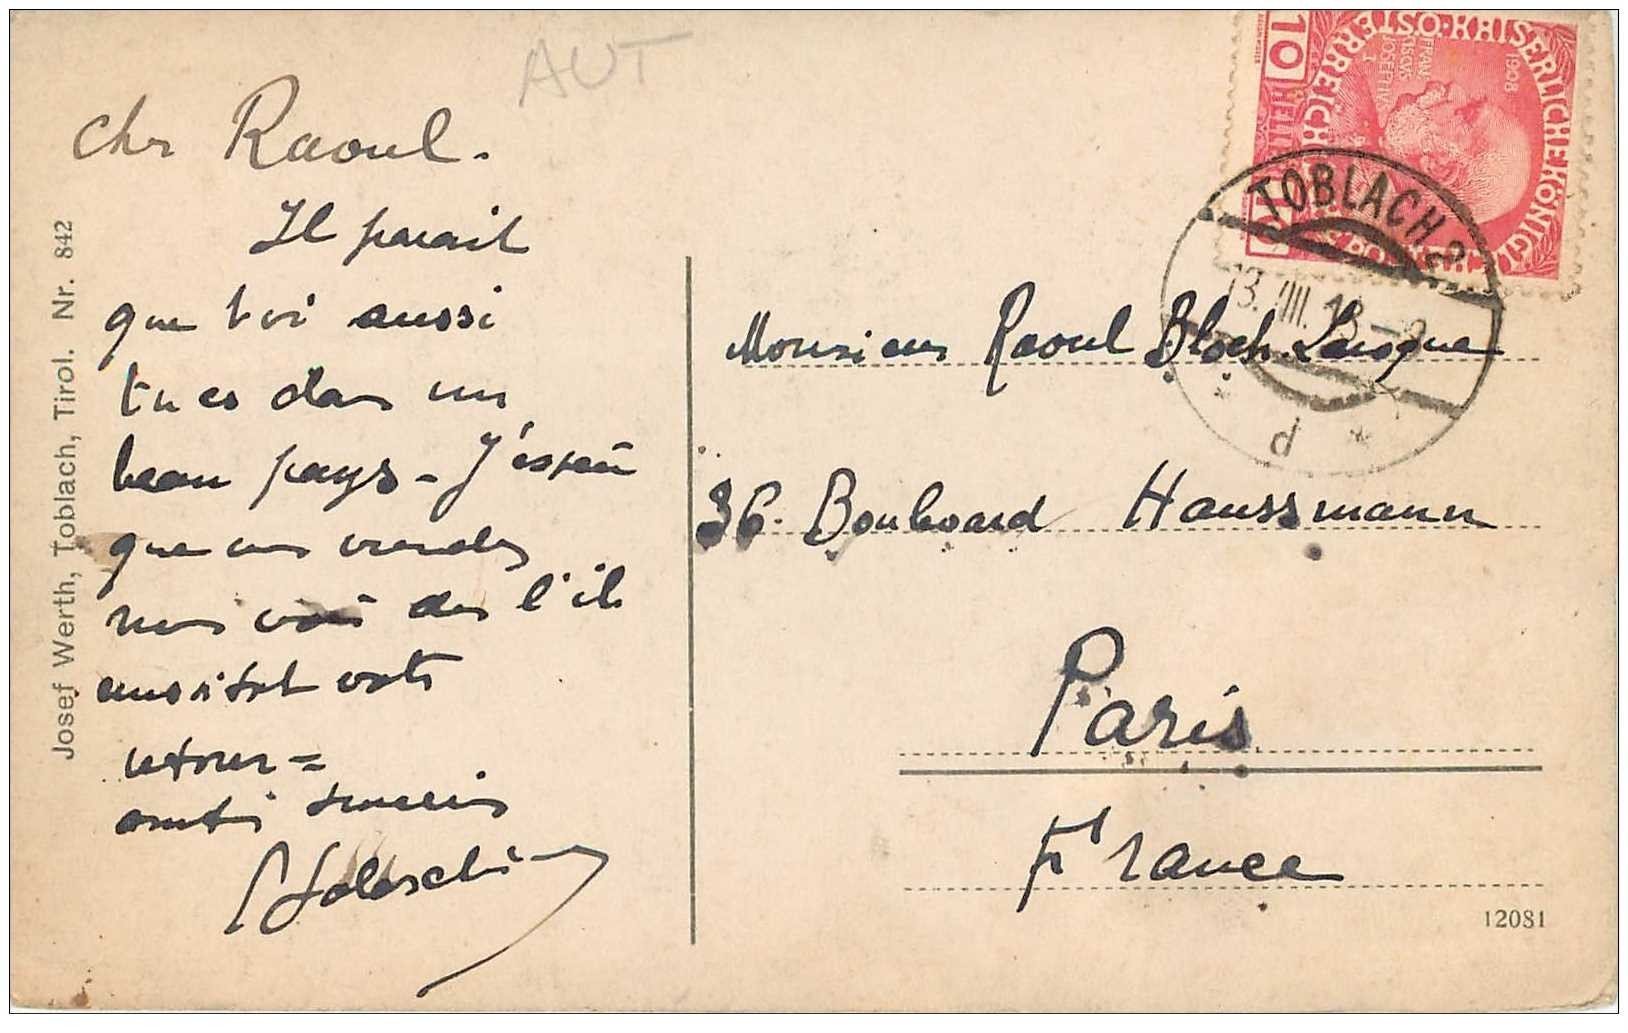 AUT
Cher Raoul.
Il parait
que toi aussi
tu es dans un
beau pays - J'espère
que vous viendrez
nous voir dès l'
aussitôt votre
retour =
amitiés
Monsieur Raoul Bloch Laroque
36. Boulevard Haussmann
Paris
France
12081
Josef Werth, Toblach, Tirol. Nr. 842
KAISERLICHE KÖNIGLICHE ÖSTERREICHISCHE
FRAN
CISCVS
JOSEPH
I
1908
10 HELLER 10
TOBLACH 2
13. VIII. 13
* d *